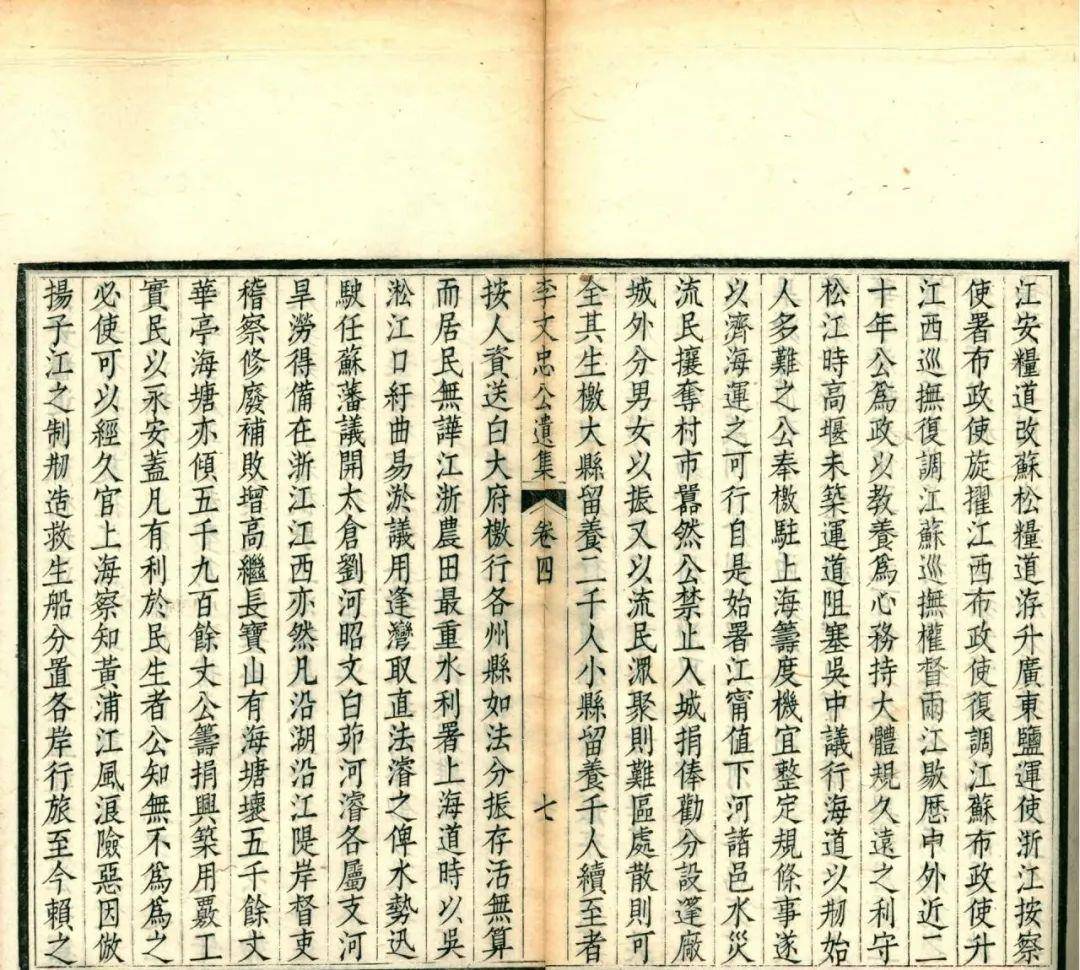 江安糧道改蘇松糧道洊升廣東鹽運使浙江按察
使署布政使旋擢江西布政使復調江蘇布政使升
江西巡撫復調江蘇巡撫權督兩江敭歷中外近二
十年公爲政以教養爲心務持大體規久遠之利守
松江時高堰未築運道阻塞吳中議行海道以剏始
人多難之公奉檄駐上海籌度機宜整定規條事遂
以濟海運之可行自是始署江甯值下河諸邑水災
流民攘奪村市囂然公禁止入城捐俸勸分設篷廠
城外分男女以振又以流民潀聚則難區處散則可
全其生檄大縣留養二千人小縣留養千人續至者
李文忠公遺集 卷四 七
按人資送白大府檄行各州縣如法分振存活無算
而居民無譁江浙農田最重水利署上海道時以吳
淞江口紆曲易淤議用逢灣取直法濬之俾水勢迅
駛任蘇藩議開太倉劉河昭文白茆河濬各屬支河
旱澇得備在浙江江西亦然凡沿湖沿江隄岸督吏
稽察修廢補敗增高繼長寶山有海塘壞五千餘丈
華亭海塘亦傾五千九百餘丈公籌捐興築用覈工
實民以永安蓋凡有利於民生者公知無不爲爲之
必使可以經久官上海察知黃浦江風浪險惡因倣
揚子江之制剏造救生船分置各岸行旅至今賴之